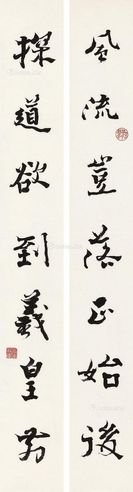 風流豈落正始後
探道欲到羲皇前